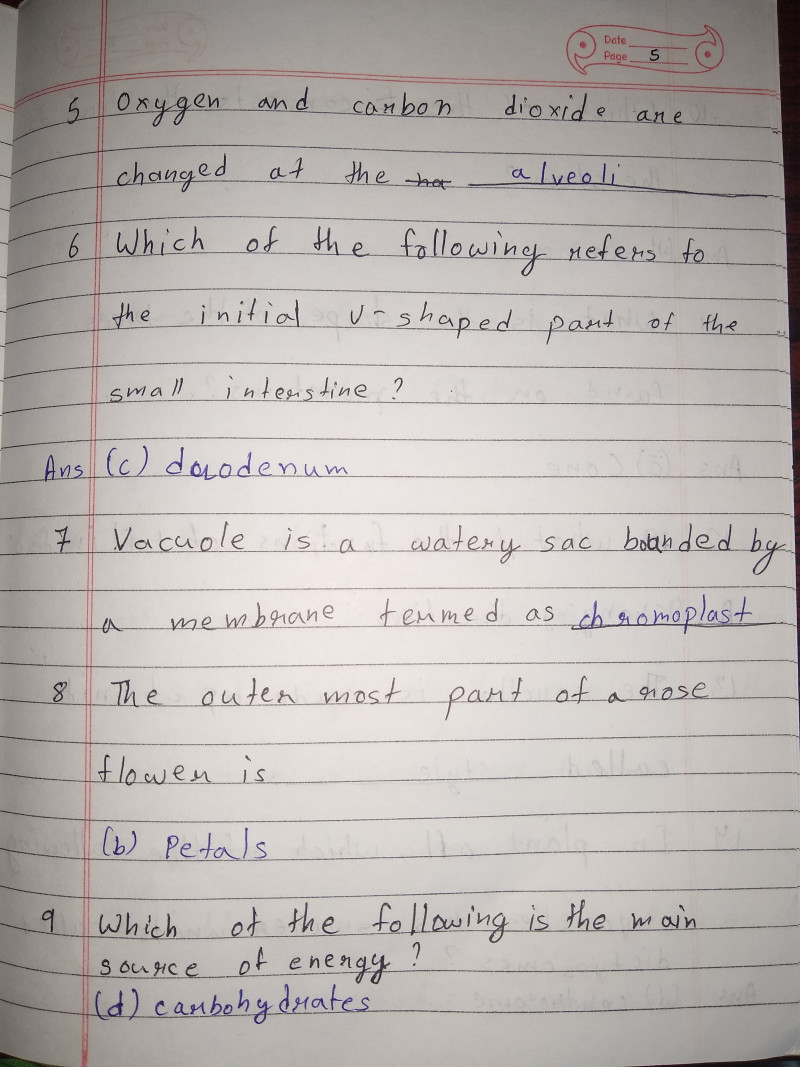 Date
Page 5
5 Oxygen and carbon dioxide are
changed at the alveoli
6 Which of the following refers to
the initial U-shaped part of the
small interstine?
Ans (c) duodenum
7 Vacuole is a watery sac bounded by
a membrane termed as chromoplast
8 The outer most part of a rose
flower is
(b) Petals
9 Which of the following is the main
source of energy?
(d) carbohydrates